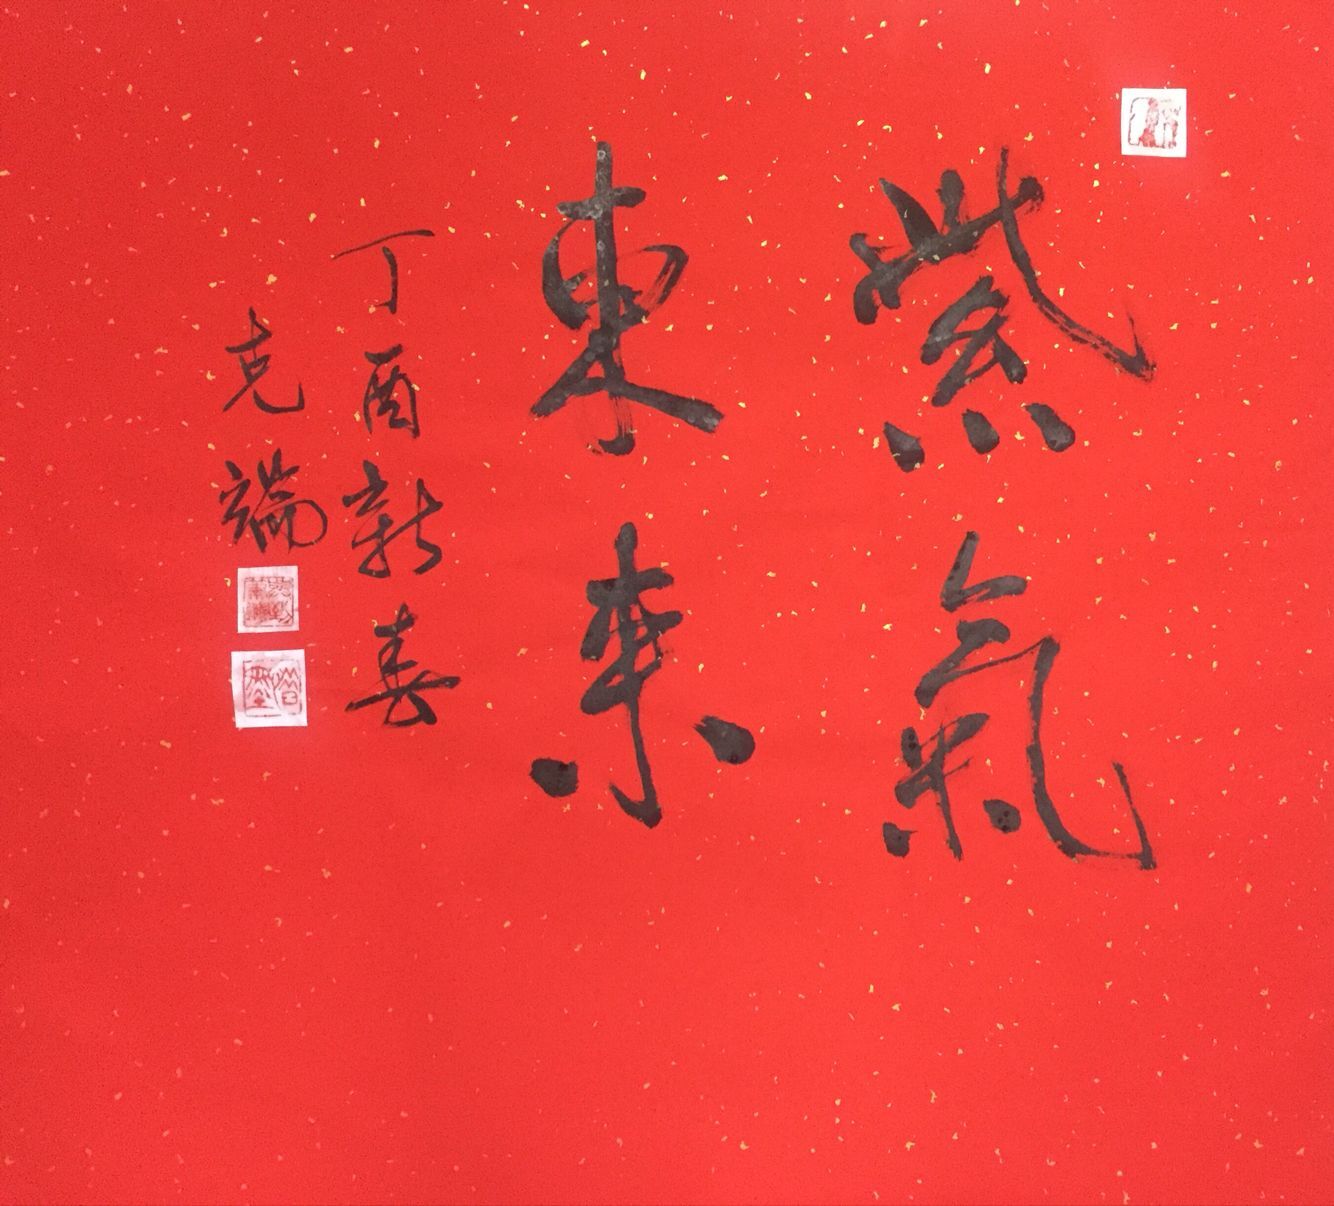 紫氣
東来
丁酉新春
克端